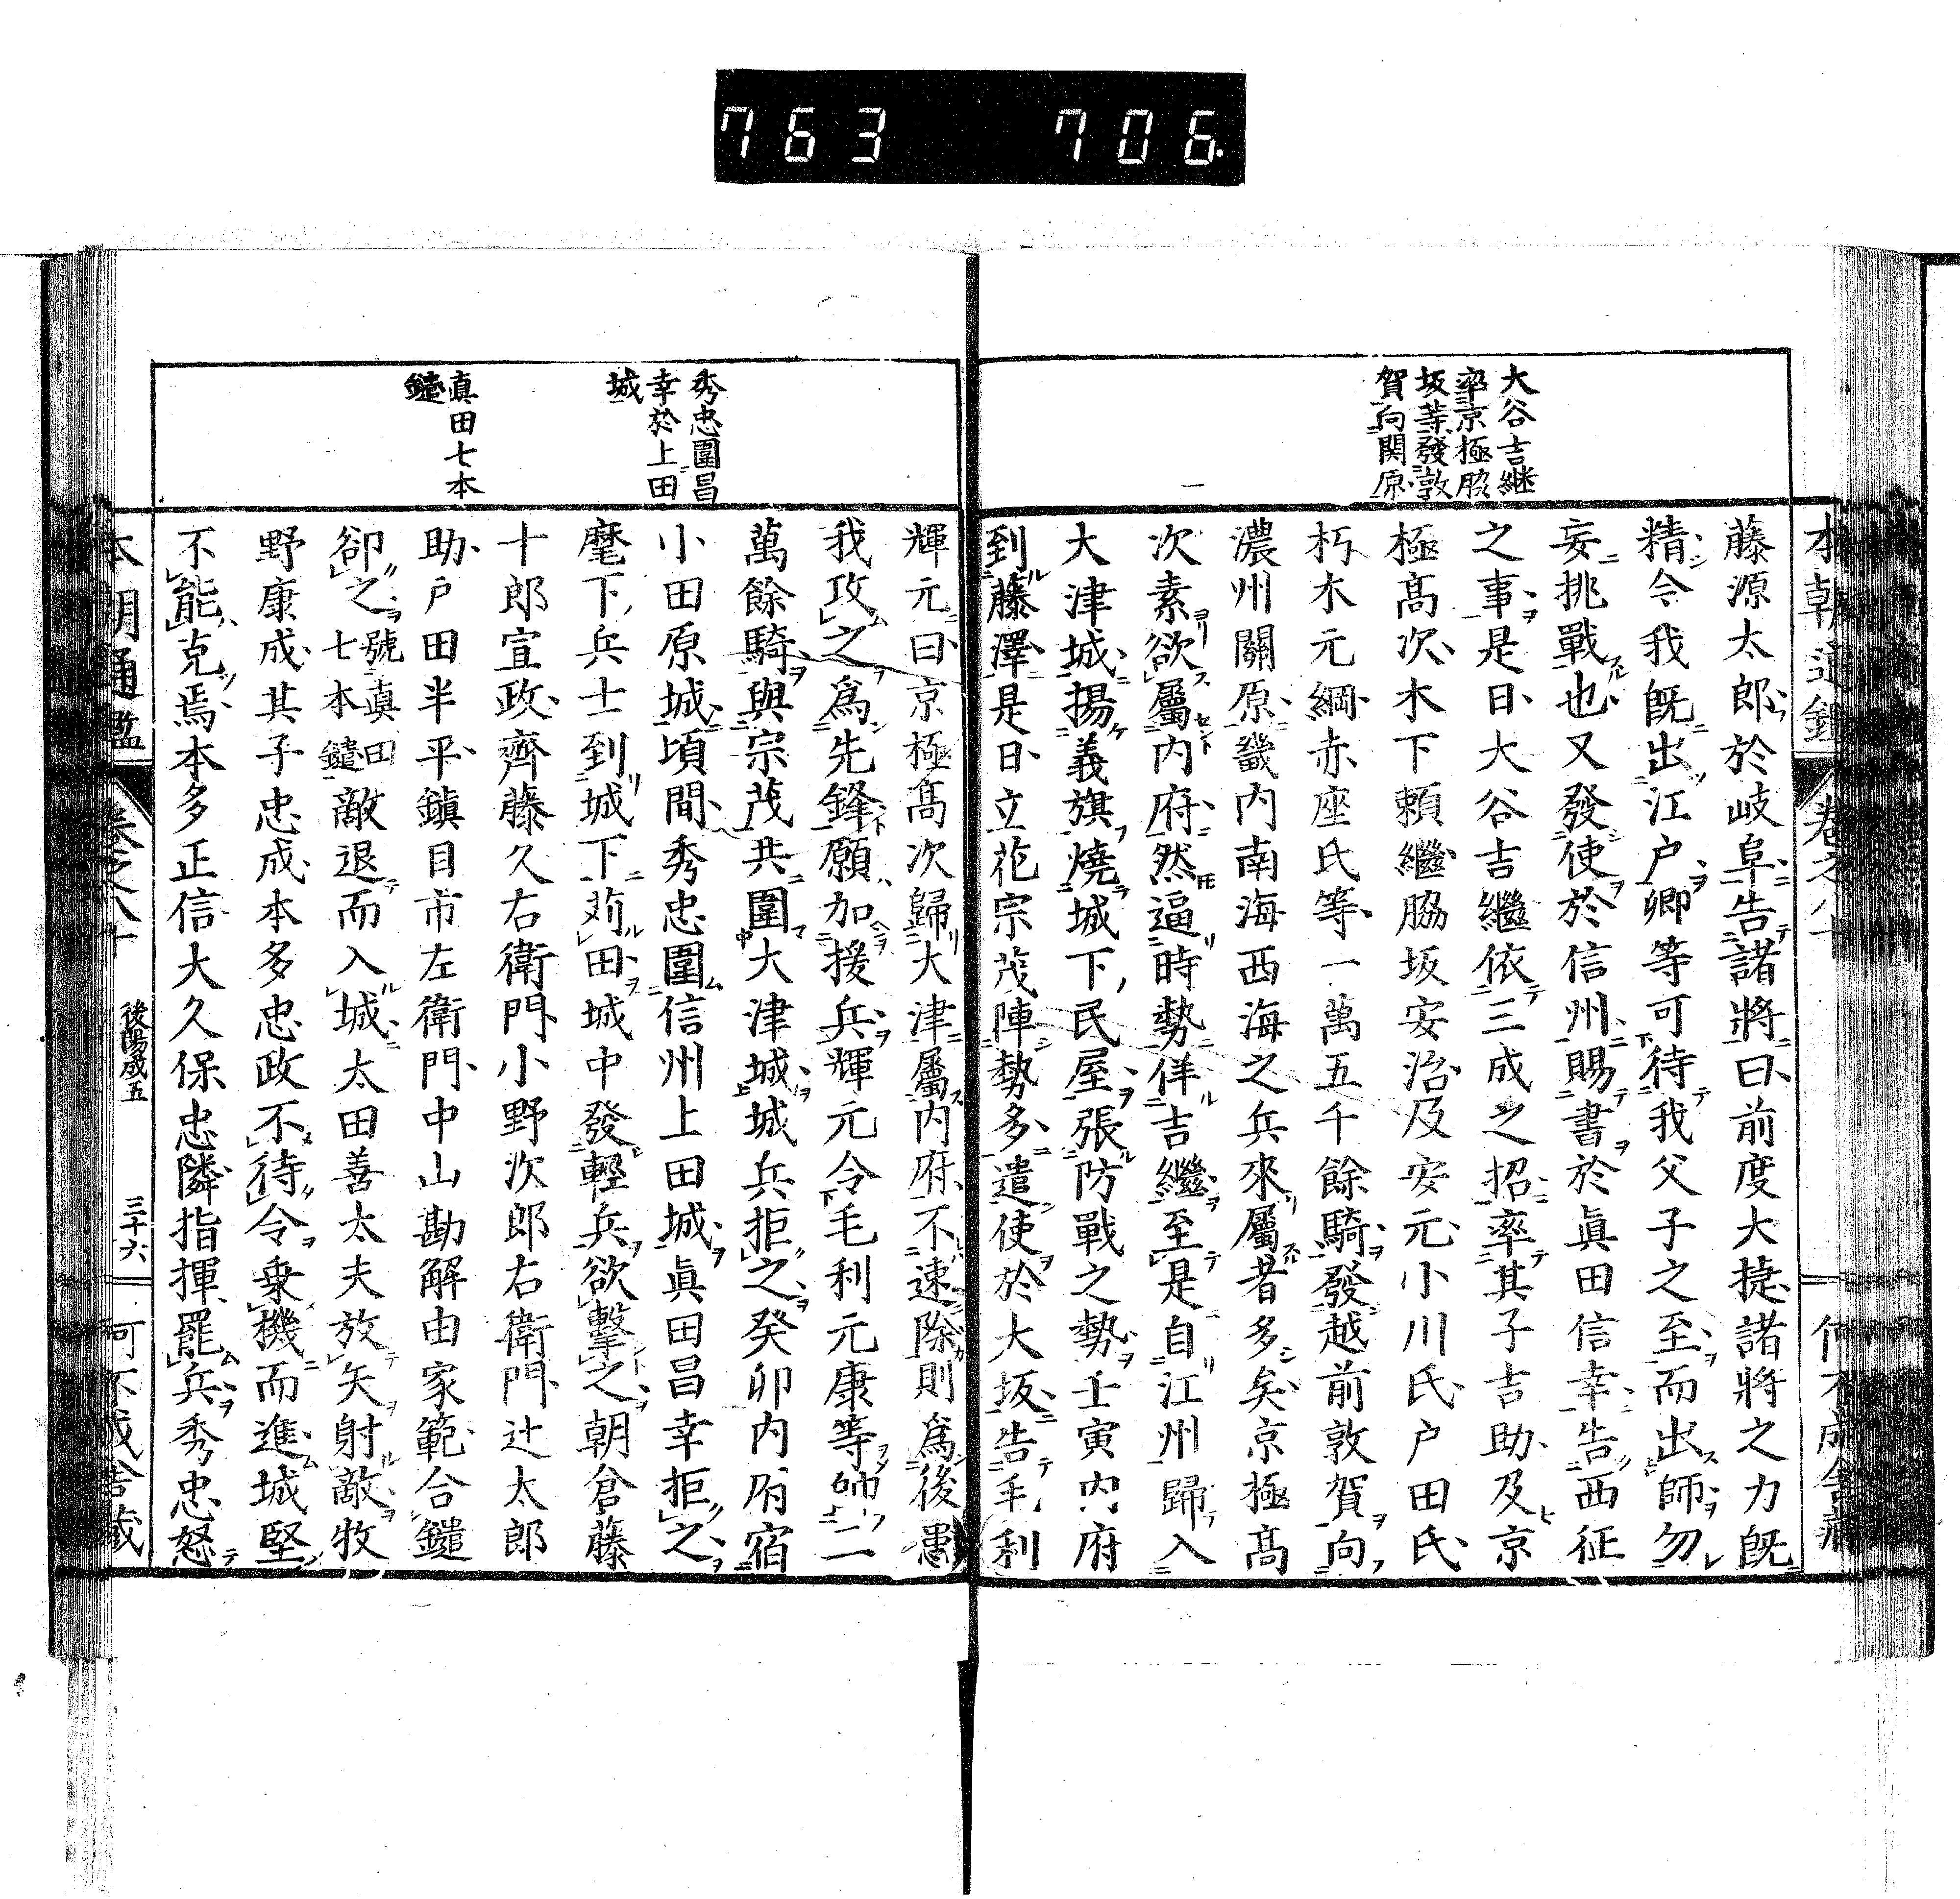 763 706.
大谷吉継
率京極脇
坂等發敦
賀向関原
藤源太郎於岐阜告諸將曰前度大捷諸將之力既
精今我既出江戸卿等可待我父子之至而出師勿
妄挑戰也又發使於信州賜書於眞田信幸告西征
之事是日大谷吉繼依三成之招率其子吉助及京
極高次木下頼繼脇坂安治及安元小川氏戸田氏
朽木元綱赤座氏等一萬五千餘騎發越前敦賀向
濃州關原畿内南海西海之兵來屬者多矣京極高
次素欲屬内府然逼時勢佯吉繼至是自江州歸入
大津城揚義旗燒城下民屋張防戰之勢壬寅内府
到藤澤是日立花宗茂陣勢多遣使於大坂告毛利
秀忠圍昌
幸於上田
城
眞田七本
鑓
輝元曰京極高次歸大津屬内府不速除則爲後患
我攻之爲先鋒願加援兵輝元令毛利元康等帥二
萬餘騎與宗茂共圍大津城城兵拒之癸卯内府宿
小田原城頃間秀忠圍信州上田城眞田昌幸拒之
麾下兵士到城下苅田城中發輕兵欲擊之朝倉藤
十郎宣政齊藤久右衛門小野次郎右衛門辻太郎
助戸田半平鎮目市左衛門中山勘解由家範合鑓
卻之號眞田七本鑓敵退而入城太田善太夫放矢射敵牧
野康成其子忠成本多忠政不待令乗機而進城堅
不能克焉本多正信大久保忠隣指揮罷兵秀忠怒
本朝通鑑 卷之八十 後陽成五 三十六